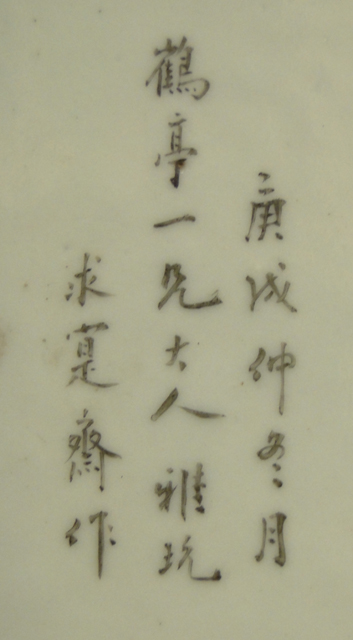 庚戌仲冬月
鶴亭一兄大人雅玩
求寔齋作